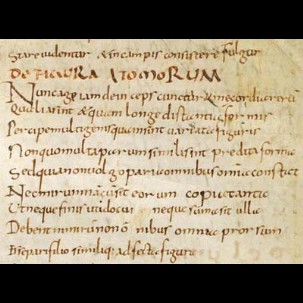 Stare videntur & in campis consistere fulgur
DE FIGURA ATOMORUM
Nunc age iam deinceps
Qualia sint & quam longe distantia formis
Percipe multigenis quam sint variata figuris
Non quo multa parum simili sint predita forma
Sed quia non volgo paria omnibus omnia
Nec mirum nam cum sit eorum copia tanta
Ut neque finis uti docui neque summa sit ulla
Debent nimirum non omnibus omnia prorsum
Esse pari filo similiq; adfecta figura